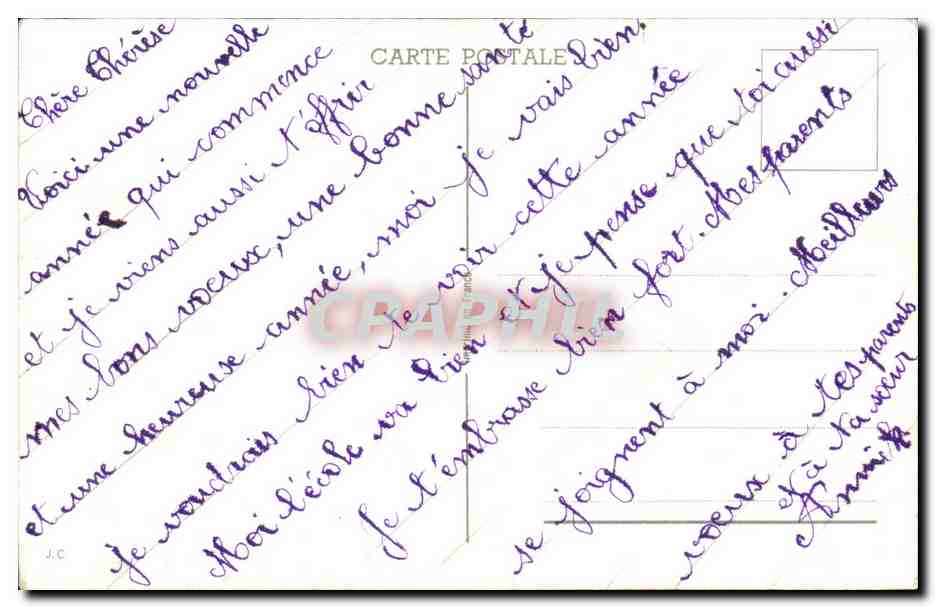 CARTE POSTALE
Chère Thérèse
Voici une nouvelle
année qui commence
et je viens aussi t'offrir
mes bons voeux, une bonne santé
et une heureuse année, moi je vais bien,
je voudrais bien te voir cette année
Moi l'école va bien et je pense que toi aussi
Je t'embrasse bien fort. Mes parents
se joignent à moi. Meilleurs
voeux à tes parents
et à ta soeur
Annick
CPAPHIL
J.C